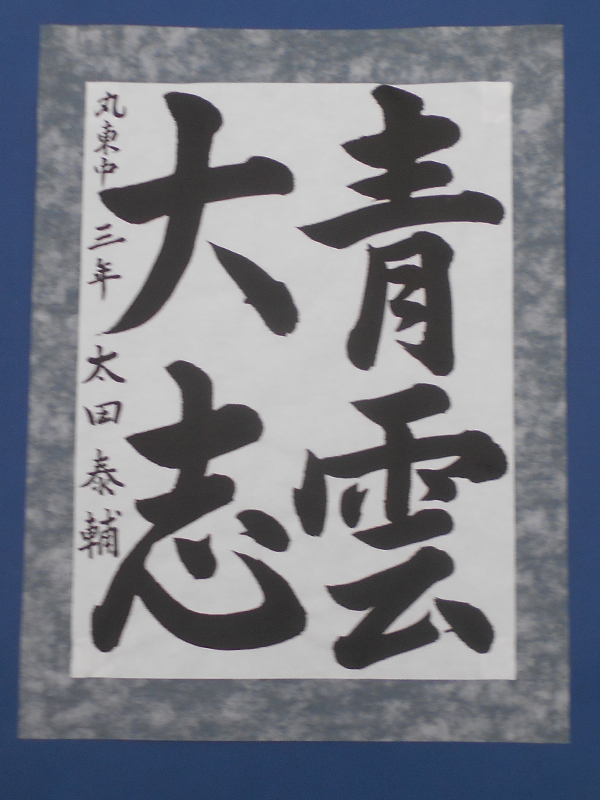 青雲
大志
丸東中 三年 太田泰輔